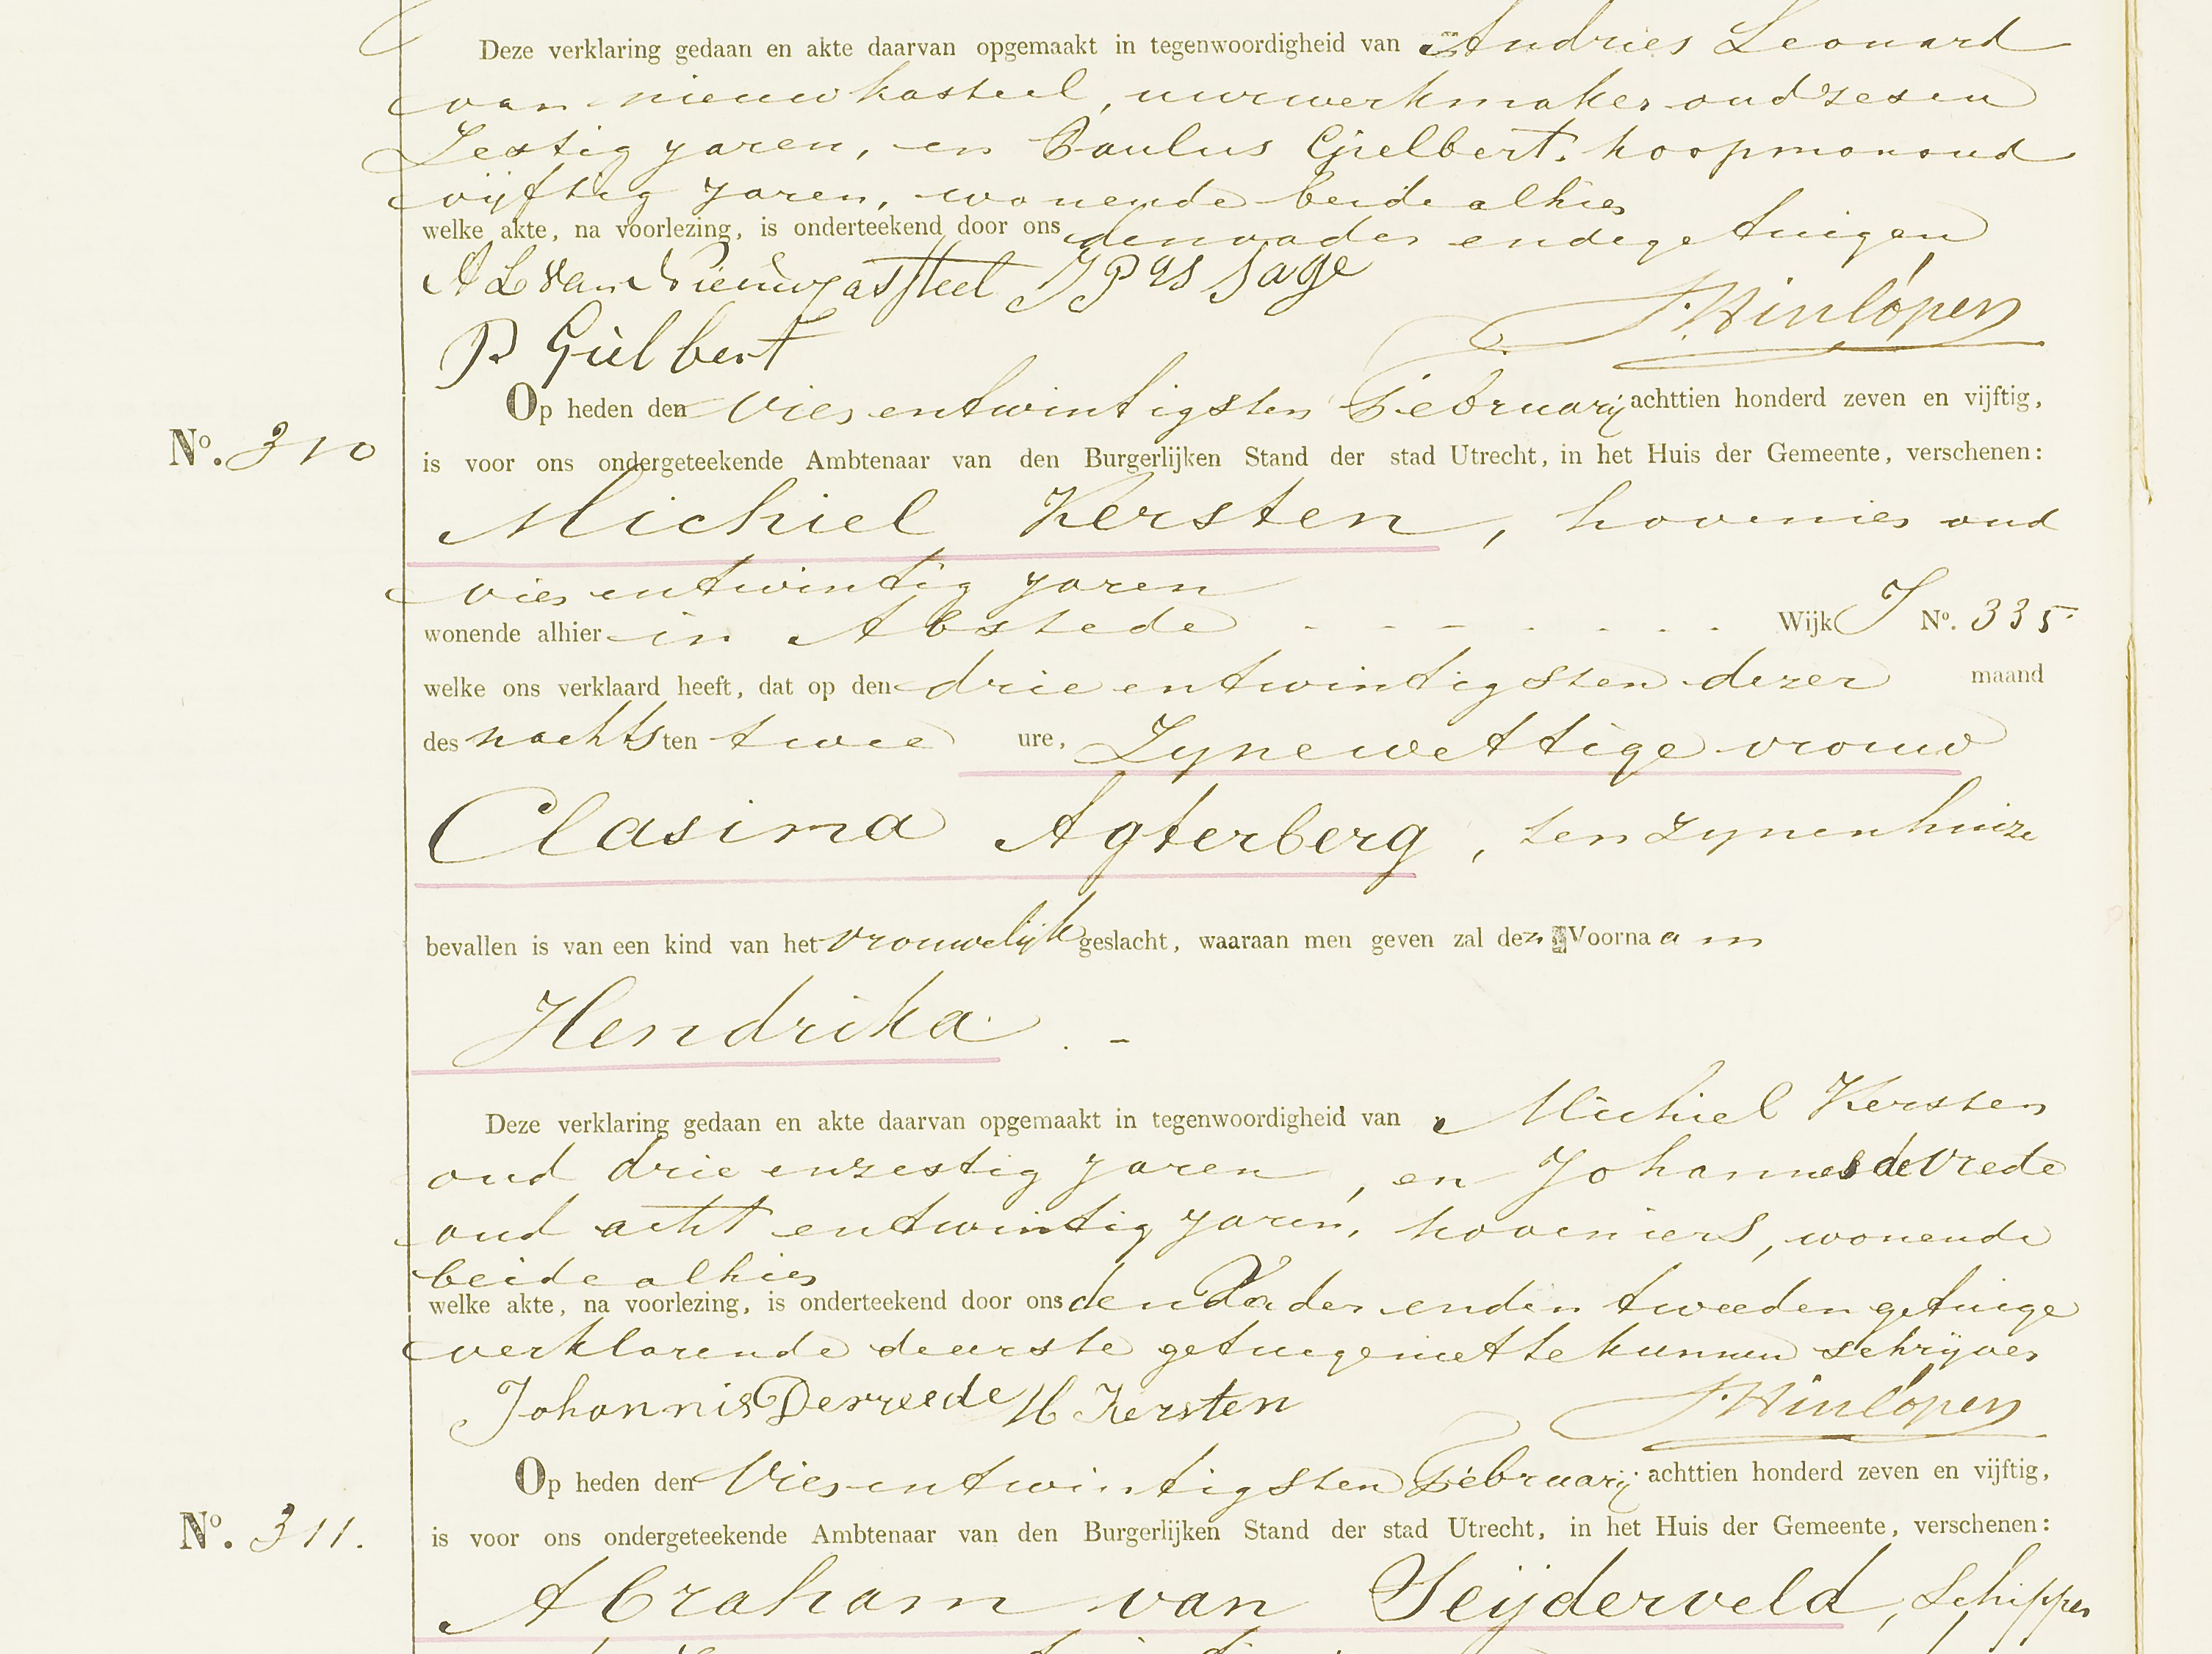 Deze verklaring gedaan en akte daarvan opgemaakt in tegenwoordigheid van Andries Leonard
van nieuwkasteel, uurwerkmaker oud zesen
Zestig jaren, en Paulus Gielbert, koopman oud
vijftig jaren, wonende beide alhier
welke akte, na voorlezing, is onderteekend door ons den vader en de getuigen
A L van Nieuwkasteel J P
P Gielbert J Winlópen
Op heden den Vier en twintigsten February achttien honderd zeven en vijftig,
No. 310
is voor ons ondergeteekende Ambtenaar van den Burgerlijken Stand der stad Utrecht, in het Huis der Gemeente, verschenen:
Michiel Kersten, hovenier oud
vier en twintig jaren
wonende alhier in Abstede - - - - - - - - Wijk J No. 335
welke ons verklaard heeft, dat op den drie en twintigsten dezer maand
des nachts ten twee ure, Zyne wettige vrouw
Clasina Agterberg, ten zynen huize
bevallen is van een kind van het vrouwelijk geslacht, waaraan men geven zal den Voornaam
Hendrika. -
Deze verklaring gedaan en akte daarvan opgemaakt in tegenwoordigheid van Michiel Kersten
oud drie en zestig jaren, en Johannes de Vrede
oud acht en twintig jaren, hoveniers, wonende
beide alhier
welke akte, na voorlezing, is onderteekend door ons den Vader en den tweeden getuige
verklarende de eerste getuige niet te kunnen schrijven
Johannis Derreede M Kersten J Winlópen
Op heden den Vier en twintigsten February achttien honderd zeven en vijftig,
No. 311.
is voor ons ondergeteekende Ambtenaar van den Burgerlijken Stand der stad Utrecht, in het Huis der Gemeente, verschenen:
Abraham van Seijderveld, Schipper